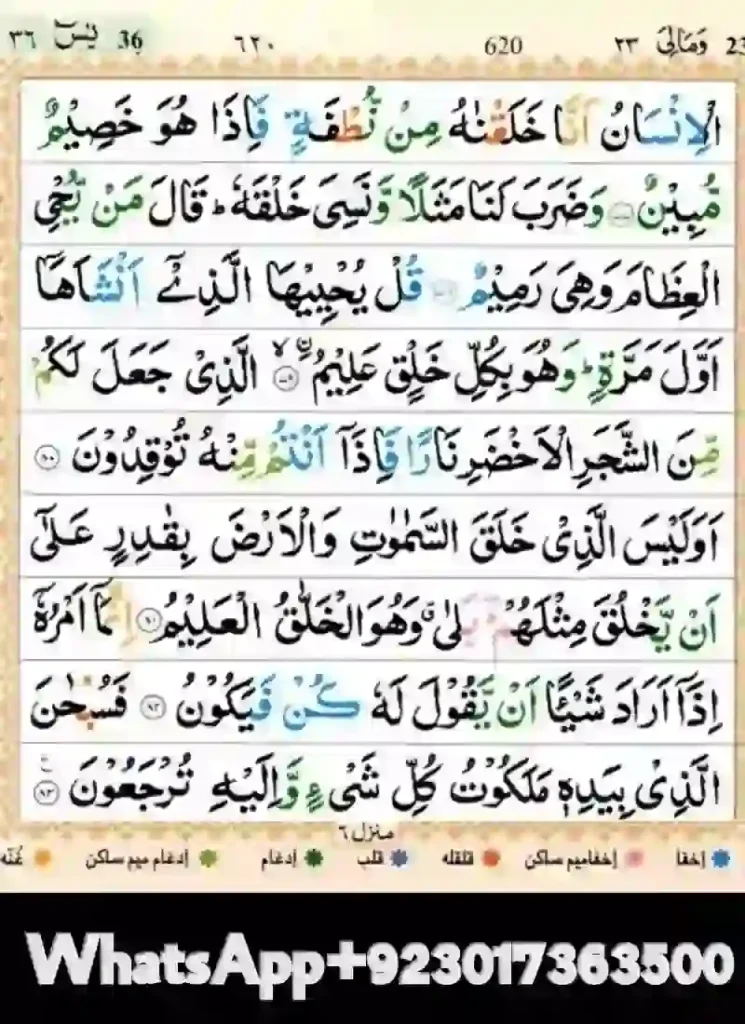 36 يٰسٓ ٣٦ ٦٢٠ 620 وَمَالِیَ ٢٣ 23
الْاِنْسَانُ اَنَّا خَلَقْنٰهُ مِنْ نُّطْفَةٍ فَاِذَا هُوَ خَصِيْمٌ
مُّبِيْنٌ ۝۷۷ وَضَرَبَ لَنَا مَثَلًا وَّنَسِیَ خَلْقَهٗ ؕ قَالَ مَنْ يُّحْیِ
الْعِظَامَ وَهِیَ رَمِيْمٌ ۝۷۸ قُلْ يُحْيِيْهَا الَّذِیْۤ اَنْشَاَهَاۤ
اَوَّلَ مَرَّةٍ ؕ وَهُوَ بِكُلِّ خَلْقٍ عَلِيْمُ ۙ۝۷۹ الَّذِیْ جَعَلَ لَكُمْ
مِّنَ الشَّجَرِ الْاَخْضَرِ نَارًا فَاِذَاۤ اَنْتُمْ مِّنْهُ تُوْقِدُوْنَ ۝۸۰
اَوَلَيْسَ الَّذِیْ خَلَقَ السَّمٰوٰتِ وَالْاَرْضَ بِقٰدِرٍ عَلٰۤی
اَنْ يَّخْلُقَ مِثْلَهُمْ ؔؕ بَلٰی ۗ وَهُوَ الْخَلّٰقُ الْعَلِيْمُ ۝۸۱ اِنَّمَاۤ اَمْرُهٗۤ
اِذَاۤ اَرَادَ شَيْـًٔا اَنْ يَّقُوْلَ لَهٗ كُنْ فَيَكُوْنُ ۝۸۲ فَسُبْحٰنَ
الَّذِیْ بِيَدِهٖ مَلَكُوْتُ كُلِّ شَیْءٍ وَّاِلَيْهِ تُرْجَعُوْنَ ۝۸۳
منزل ٦
إخفا إخفا میم ساکن قلقله قلب إدغام إدغام میم ساکن غُنّه
WhatsApp+923017363500